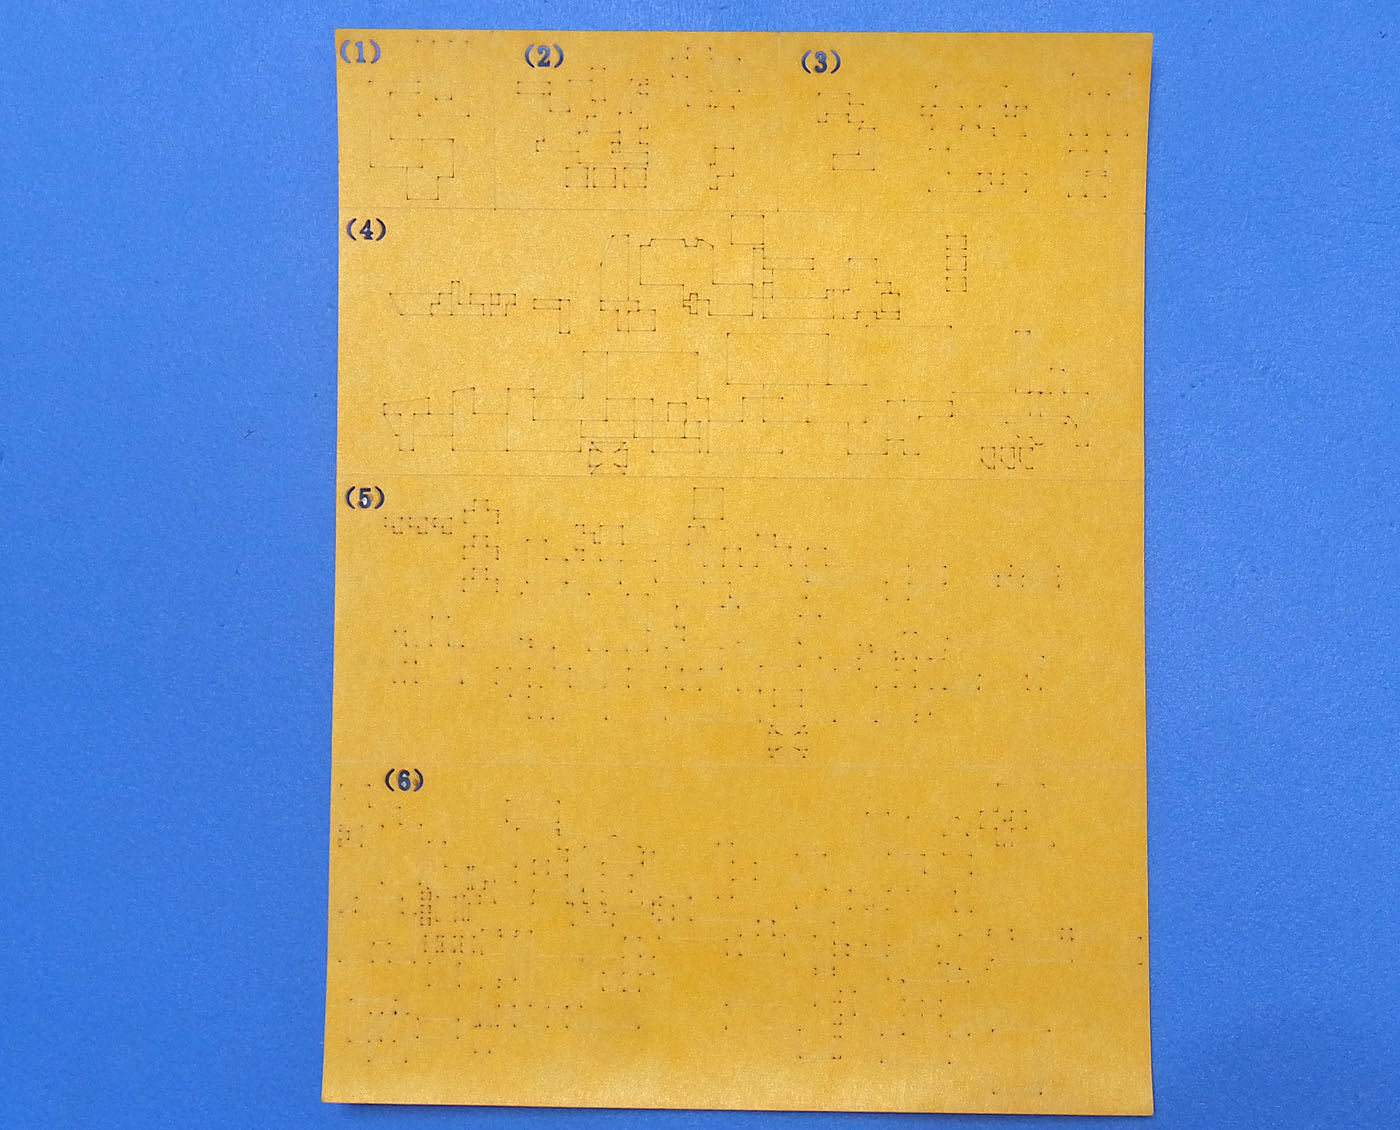 (1) (2) (3)
(4)
(5)
(6)